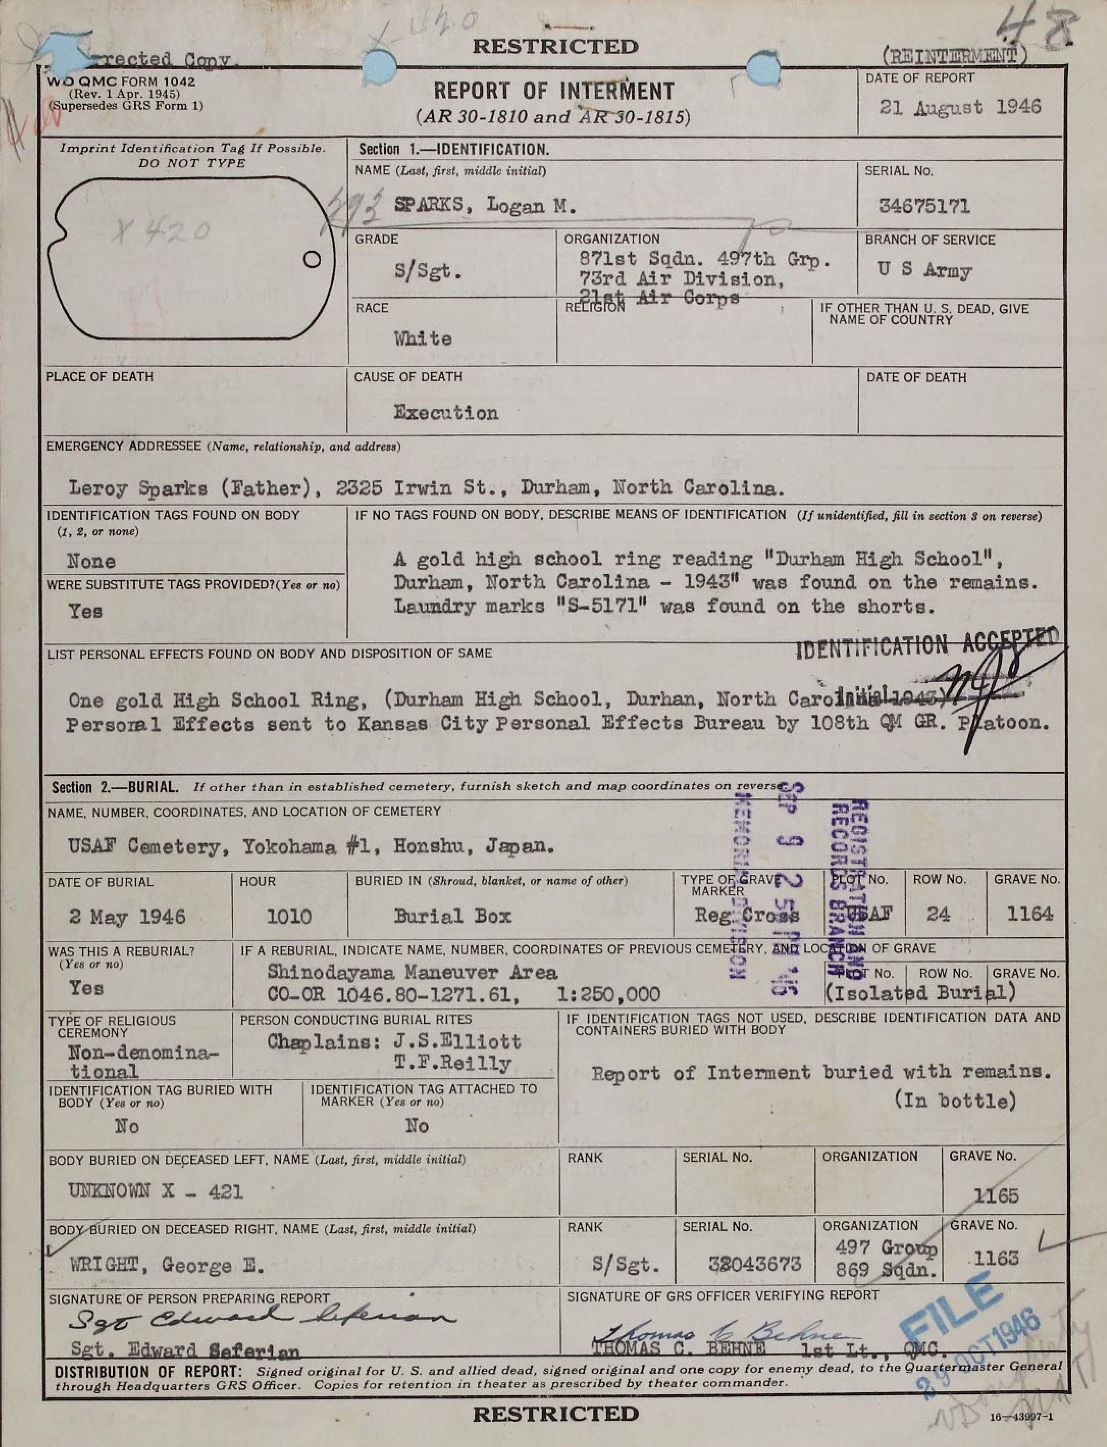 X-420
RESTRICTED
48
rrected Copy.
(REINTERMENT)
WD QMC FORM 1042
(Rev. 1 Apr. 1945)
(Supersedes GRS Form 1)
REPORT OF INTERMENT
(AR 30-1810 and AR 30-1815)
DATE OF REPORT
21 August 1946
Imprint Identification Tag If Possible.
DO NOT TYPE
X 420
Section 1.—IDENTIFICATION.
NAME (Last, first, middle initial)
SPARKS, Logan M.
SERIAL No.
34675171
GRADE
S/Sgt.
ORGANIZATION
871st Sqdn. 497th Grp.
73rd Air Division,
21st Air Corps
BRANCH OF SERVICE
U S Army
RACE
White
RELIGION
IF OTHER THAN U. S. DEAD, GIVE
NAME OF COUNTRY
PLACE OF DEATH
CAUSE OF DEATH
Execution
DATE OF DEATH
EMERGENCY ADDRESSEE (Name, relationship, and address)
Leroy Sparks (Father), 2325 Irwin St., Durham, North Carolina.
IDENTIFICATION TAGS FOUND ON BODY
(1, 2, or none)
None
WERE SUBSTITUTE TAGS PROVIDED?(Yes or no)
Yes
IF NO TAGS FOUND ON BODY, DESCRIBE MEANS OF IDENTIFICATION (If unidentified, fill in section 3 on reverse)
A gold high school ring reading "Durham High School",
Durham, North Carolina - 1943" was found on the remains.
Laundry marks "S-5171" was found on the shorts.
IDENTIFICATION ACCEPTED
Initial
LIST PERSONAL EFFECTS FOUND ON BODY AND DISPOSITION OF SAME
One gold High School Ring, (Durham High School, Durhan, North Carolina 1943)
Personal Effects sent to Kansas City Personal Effects Bureau by 108th QM GR. Platoon.
Section 2.—BURIAL. If other than in established cemetery, furnish sketch and map coordinates on reverse.
NAME, NUMBER, COORDINATES, AND LOCATION OF CEMETERY
USAF Cemetery, Yokohama #1, Honshu, Japan.
REGISTRATION AND
RECORDS BRANCH
SEP 9 2 51 PM '46
MEMORIAL DIVISION
DATE OF BURIAL
2 May 1946
HOUR
1010
BURIED IN (Shroud, blanket, or name of other)
Burial Box
TYPE OF GRAVE
MARKER
Reg Cross
PLOT No.
USAF
ROW No.
24
GRAVE No.
1164
WAS THIS A REBURIAL?
(Yes or no)
Yes
IF A REBURIAL, INDICATE NAME, NUMBER, COORDINATES OF PREVIOUS CEMETERY, AND LOCATION OF GRAVE
Shinodayama Maneuver Area
CO-OR 1046.80-1271.61, 1:250,000
PLOT No.
ROW No.
GRAVE No.
(Isolated Burial)
TYPE OF RELIGIOUS
CEREMONY
Non-denomina-
tional
PERSON CONDUCTING BURIAL RITES
Chaplains: J.S.Elliott
T.F.Reilly
IF IDENTIFICATION TAGS NOT USED, DESCRIBE IDENTIFICATION DATA AND
CONTAINERS BURIED WITH BODY
Report of Interment buried with remains.
(In bottle)
IDENTIFICATION TAG BURIED WITH
BODY (Yes or no)
No
IDENTIFICATION TAG ATTACHED TO
MARKER (Yes or no)
No
BODY BURIED ON DECEASED LEFT, NAME (Last, first, middle initial)
UNKNOWN X - 421
RANK
SERIAL No.
ORGANIZATION
GRAVE No.
1165
BODY BURIED ON DECEASED RIGHT, NAME (Last, first, middle initial)
WRIGHT, George E.
RANK
S/Sgt.
SERIAL No.
32043673
ORGANIZATION
497 Group
869 Sqdn.
GRAVE No.
1163
SIGNATURE OF PERSON PREPARING REPORT
Sgt Edward Seferian
Sgt. Edward Seferian
SIGNATURE OF GRS OFFICER VERIFYING REPORT
Thomas C Behne
THOMAS C. BEHNE 1st Lt., QMC.
FILE
29 OCT 1946
DISTRIBUTION OF REPORT: Signed original for U. S. and allied dead, signed original and one copy for enemy dead, to the Quartermaster General
through Headquarters GRS Officer. Copies for retention in theater as prescribed by theater commander.
RESTRICTED
16—43997-1